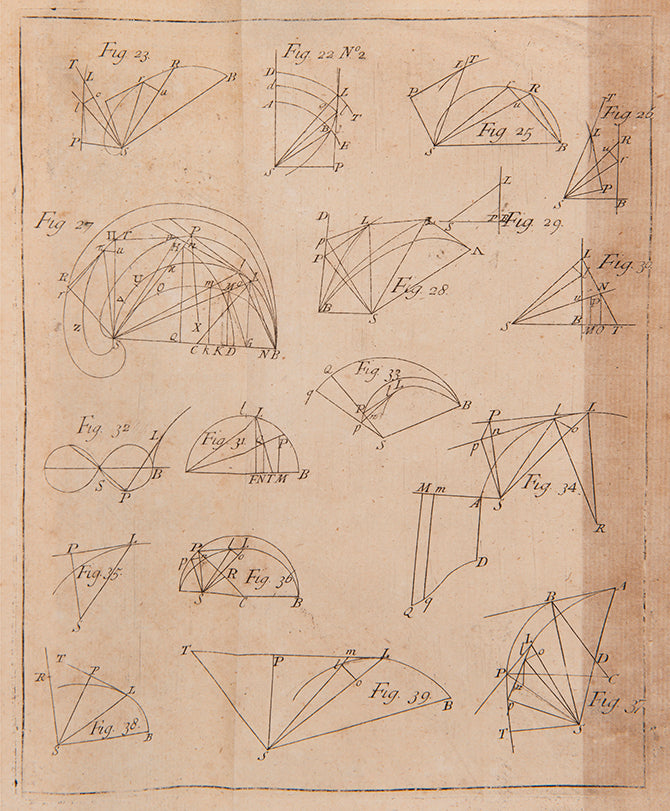 Fig 23.
T
L
r
R
B
o
u
l
P
S
Fig 22 N°2.
D
d
A
L
o
l
T
B
E
S
P
L
T
P
r
R
u
Fig 25
S
B
Fig 26
T
L
R
u
r
P
S
B
L
S
P
B
Fig 29.
Fig 27
Π
T
P
p
H
n
u
R
r
Z
m
M
l
L
S
Q
X
C
k
K
D
G
N
B
D
p
P
L
A
B
S
Fig 28.
Fig 30
L
l
N
n
P
S
B
M
O
T
Fig 32
L
B
S
P
Fig 31
l
L
P
F
N
T
M
B
Fig 33
Q
q
l
L
P
p
B
S
P
p
l
L
o
M
m
A
S
Fig 34.
D
R
Q
q
P
L
Fig. 35.
S
P
p
l
L
o
n
R
Fig 36
S
C
B
A
B
L
l
o
D
P
C
n
p
Fig 37.
T
S
T
R
p
L
Fig. 38.
S
B
T
P
m
l
L
o
Fig. 39.
B
S